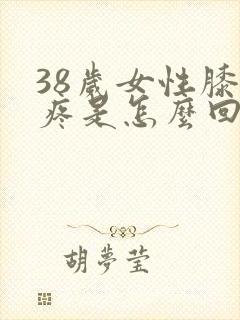 38歲女性膝
疼是怎麼回
胡夢瑩